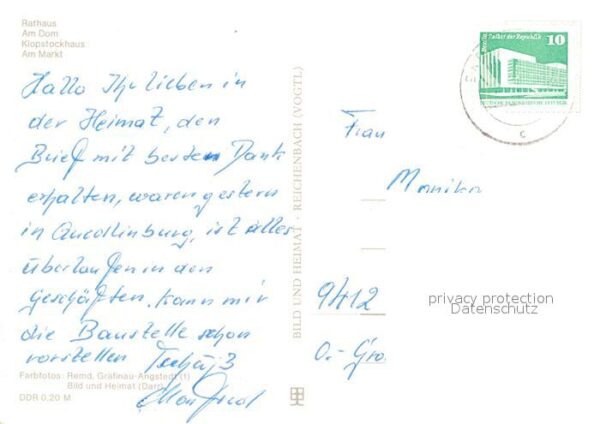 Rathaus
Am Dom
Klopstockhaus
Am Markt
Hallo Ihr lieben in
der Heimat, den
Brief mit bestem Dank
erhalten, waren gestern
in Quedlinburg, ist alles
überlaufen in den
Geschäften. Kann mir
die Baustelle schon
vorstellen Tschüß
Manfred
Farbfotos: Remd, Gräfinau-Angstedt (1)
Bild und Heimat (Darr)
DDR 0,20 M
BILD UND HEIMAT · REICHENBACH (VOGTL)
10
Berlin, Palast der Republik
C
Frau
Monika
9412
O.-Gro
privacy protection
Datenschutz